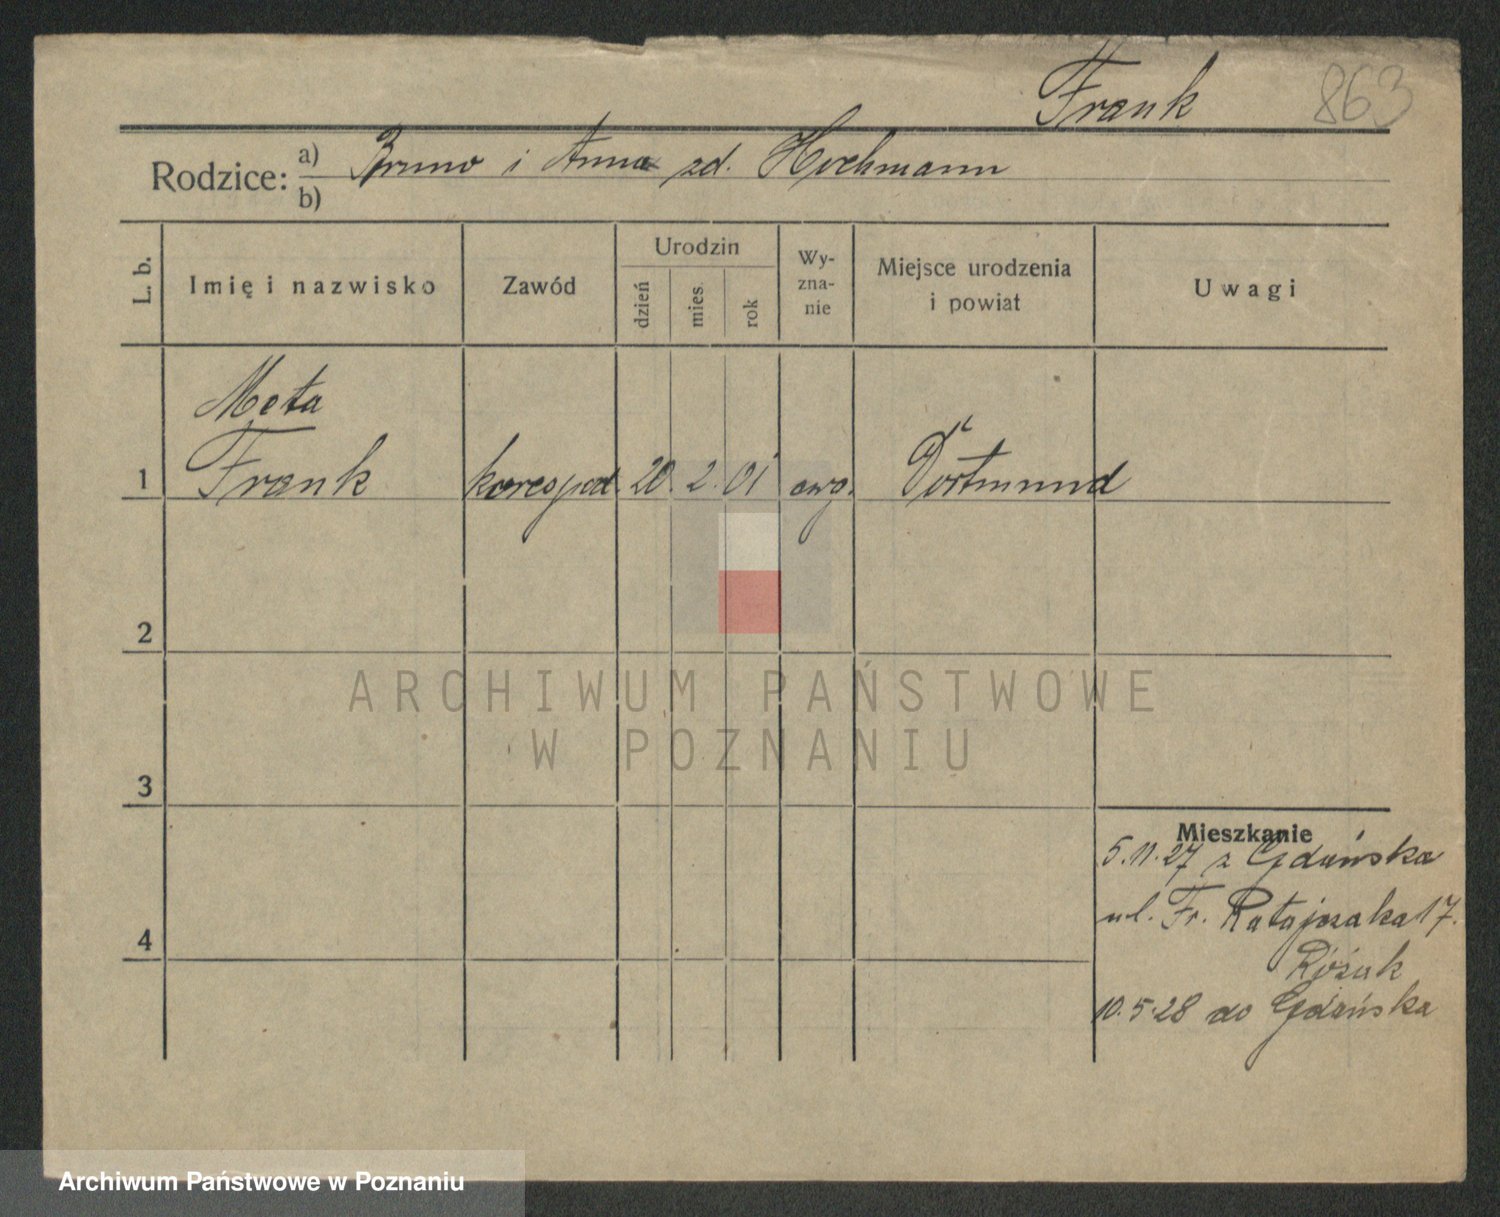 Frank
863
Rodzice: a) Bruno i Anna zd. Hochmann
b)
L. b.
Imię i nazwisko
Zawód
Urodzin
dzień
mies.
rok
Wy-
zna-
nie
Miejsce urodzenia
i powiat
Uwagi
Meta
1 Frank korespod. 20. 2. 01 ewg. Dortmund
2
3
4
Mieszkanie
5.11.27 z Gdańska
ul. Fr. Ratajczaka 17.
Rózak
10.5.28 do Gdańska
ARCHIWUM PAŃSTWOWE
W POZNANIU
Archiwum Państwowe w Poznaniu